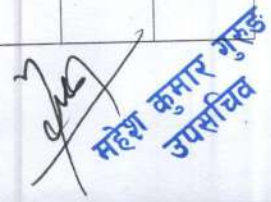 महेश कुमार गुरुङ
उपसचिव